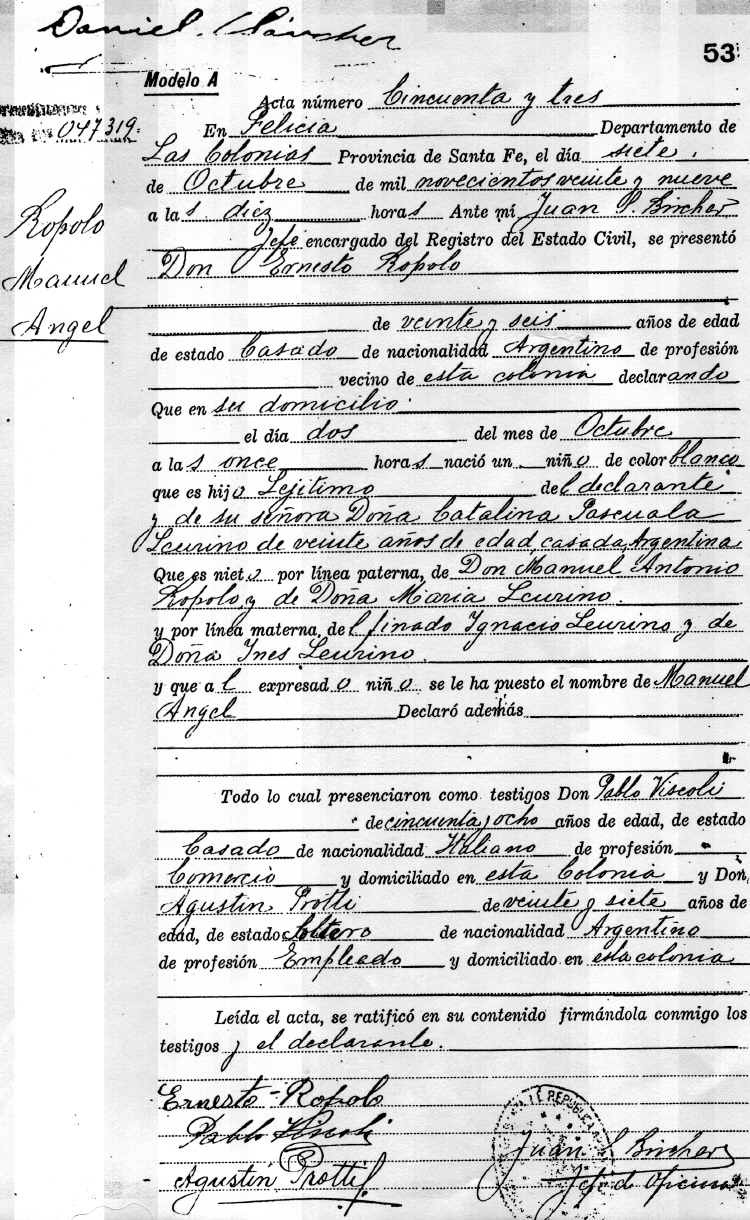 Daniel
53
Modelo A
Acta número Cincuenta y tres
047319
En Felicia Departamento de
Las Colonias Provincia de Santa Fe, el día siete
de Octubre de mil novecientos veinte y nueve
a las diez horas Ante mi Juan S. Bircher
Jefe encargado del Registro del Estado Civil, se presentó
Don Ernesto Ropolo
Ropolo
Manuel
Angel
de veinte y seis años de edad
de estado Casado de nacionalidad Argentino de profesión
vecino de esta colonia declarando
Que en su domicilio
el día dos del mes de Octubre
a las once horas nació un niño de color blanco
que es hijo Lejitimo del declarante
y de su señora Doña Catalina Pascuala
Leurino de veinte años de edad, casada, Argentina
Que es nieto por línea paterna, de Don Manuel Antonio
Ropolo y de Doña Maria Leurino.
y por línea materna, del finado Ignacio Leurino y de
Doña Ines Leurino.
y que al expresado niño se le ha puesto el nombre de Manuel
Angel Declaró además
Todo lo cual presenciaron como testigos Don Pablo Viscoli
de cincuenta y ocho años de edad, de estado
Casado de nacionalidad Italiano de profesión
Comercio y domiciliado en esta Colonia y Don
Agustin Protti de veinte y siete años de
edad, de estado Soltero de nacionalidad Argentino
de profesión Empleado y domiciliado en esta colonia
Leída el acta, se ratificó en su contenido firmándola conmigo los
testigos y el declarante.
Ernesto Ropolo
Pablo Viscoli
Agustin Protti
Juan S Bircher
Jefe de Oficina